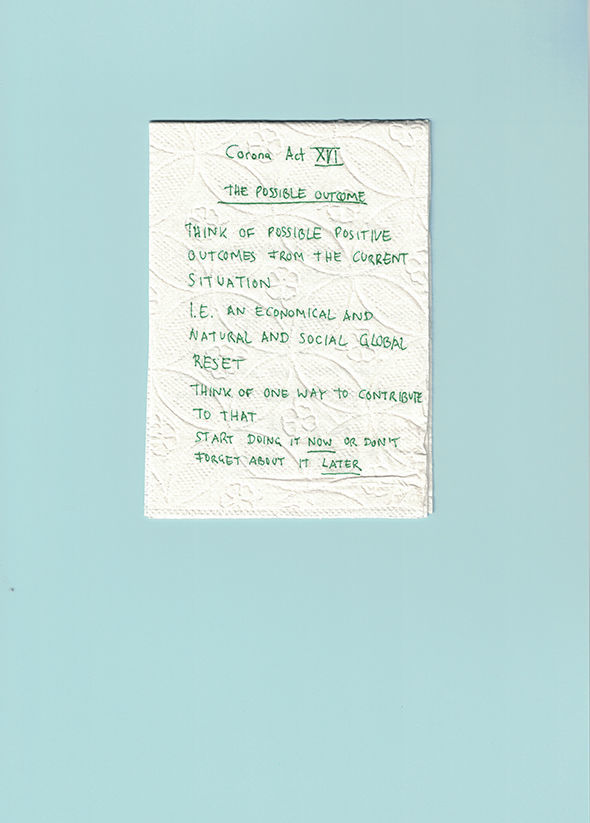 Corona Act XVI
THE POSSIBLE OUTCOME
THINK OF POSSIBLE POSITIVE
OUTCOMES FROM THE CURRENT
SITUATION
I.E. AN ECONOMICAL AND
NATURAL AND SOCIAL GLOBAL
RESET
THINK OF ONE WAY TO CONTRIBUTE
TO THAT
START DOING IT NOW OR DON'T
FORGET ABOUT IT LATER